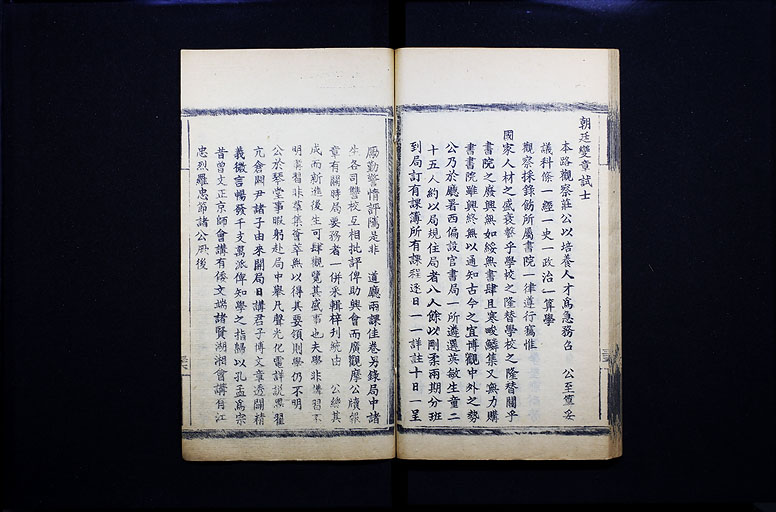 朝廷變章試士
本路觀察莊公以培養人才為急務邀 公至商妥
議科條一經一史一政治一算學
觀察採錄飭所屬書院一律遵行竊惟
國家人材之盛衰繫乎學校之隆替學校之隆替關乎
書院之廢興無如綏無書肆且寒畯鱗集又無力購
書書院雖興終無以通知古今之宜博觀中外之勢
公乃於廳署西偏設官書局一所遴選英敏生童二
十五人約以局規住局者八人餘以剛柔兩期分班
到局訂有課簿所有課程逐日一一詳註十日一呈
勵勤警惰評隲是非 道廳兩課佳卷另錄局中諸
生各司讐校互相批評俾助興會而廣觀摩公牘報
章有關時局要務者一併采輯梓列統由 公總其
成而新進後生可肆觀覽其盛事也夫學非講習不
明講習非萃集薈萃無以得其要領則學仍不明
公於琴堂事暇躬赴局中舉凡聲光化電詳説墨翟
亢倉關尹諸子由來開局日講君子博文章透闢精
義微言暢發千支萬派俾知學之指歸以孔孟為宗
昔曾文正京師會講有倭文端諸賢湖湘會講有江
忠烈羅忠節諸公厥後